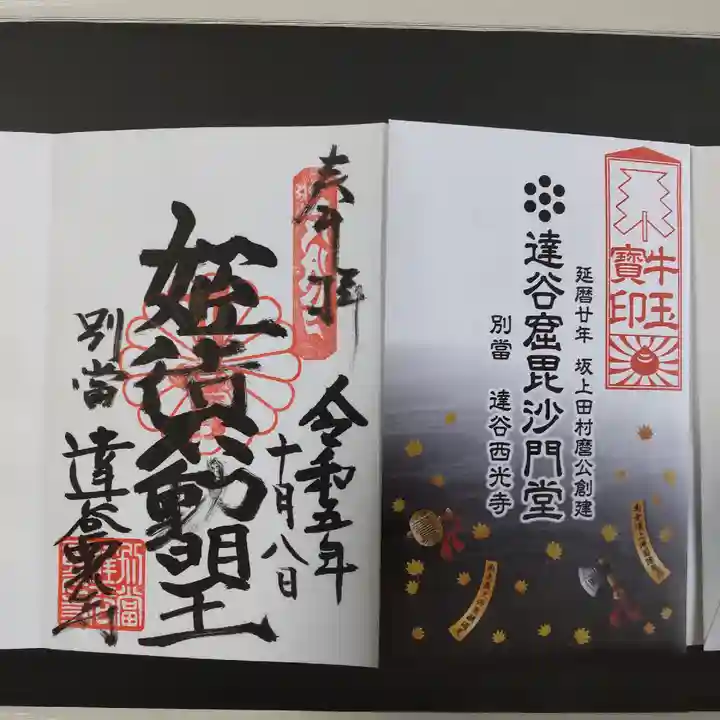 奉拝
令和五年
十月八日
姫待不動明王
別當
達谷窟
別當
牛玉
寶印
延暦廿年 坂上田村麿公創建
達谷窟毘沙門堂
別當 達谷西光寺